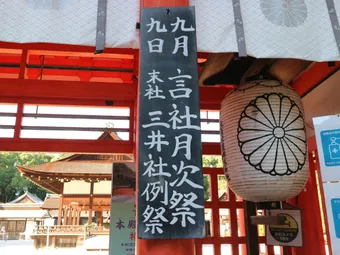 九月 言社月次祭
九日 末社 三井社例祭
本殿